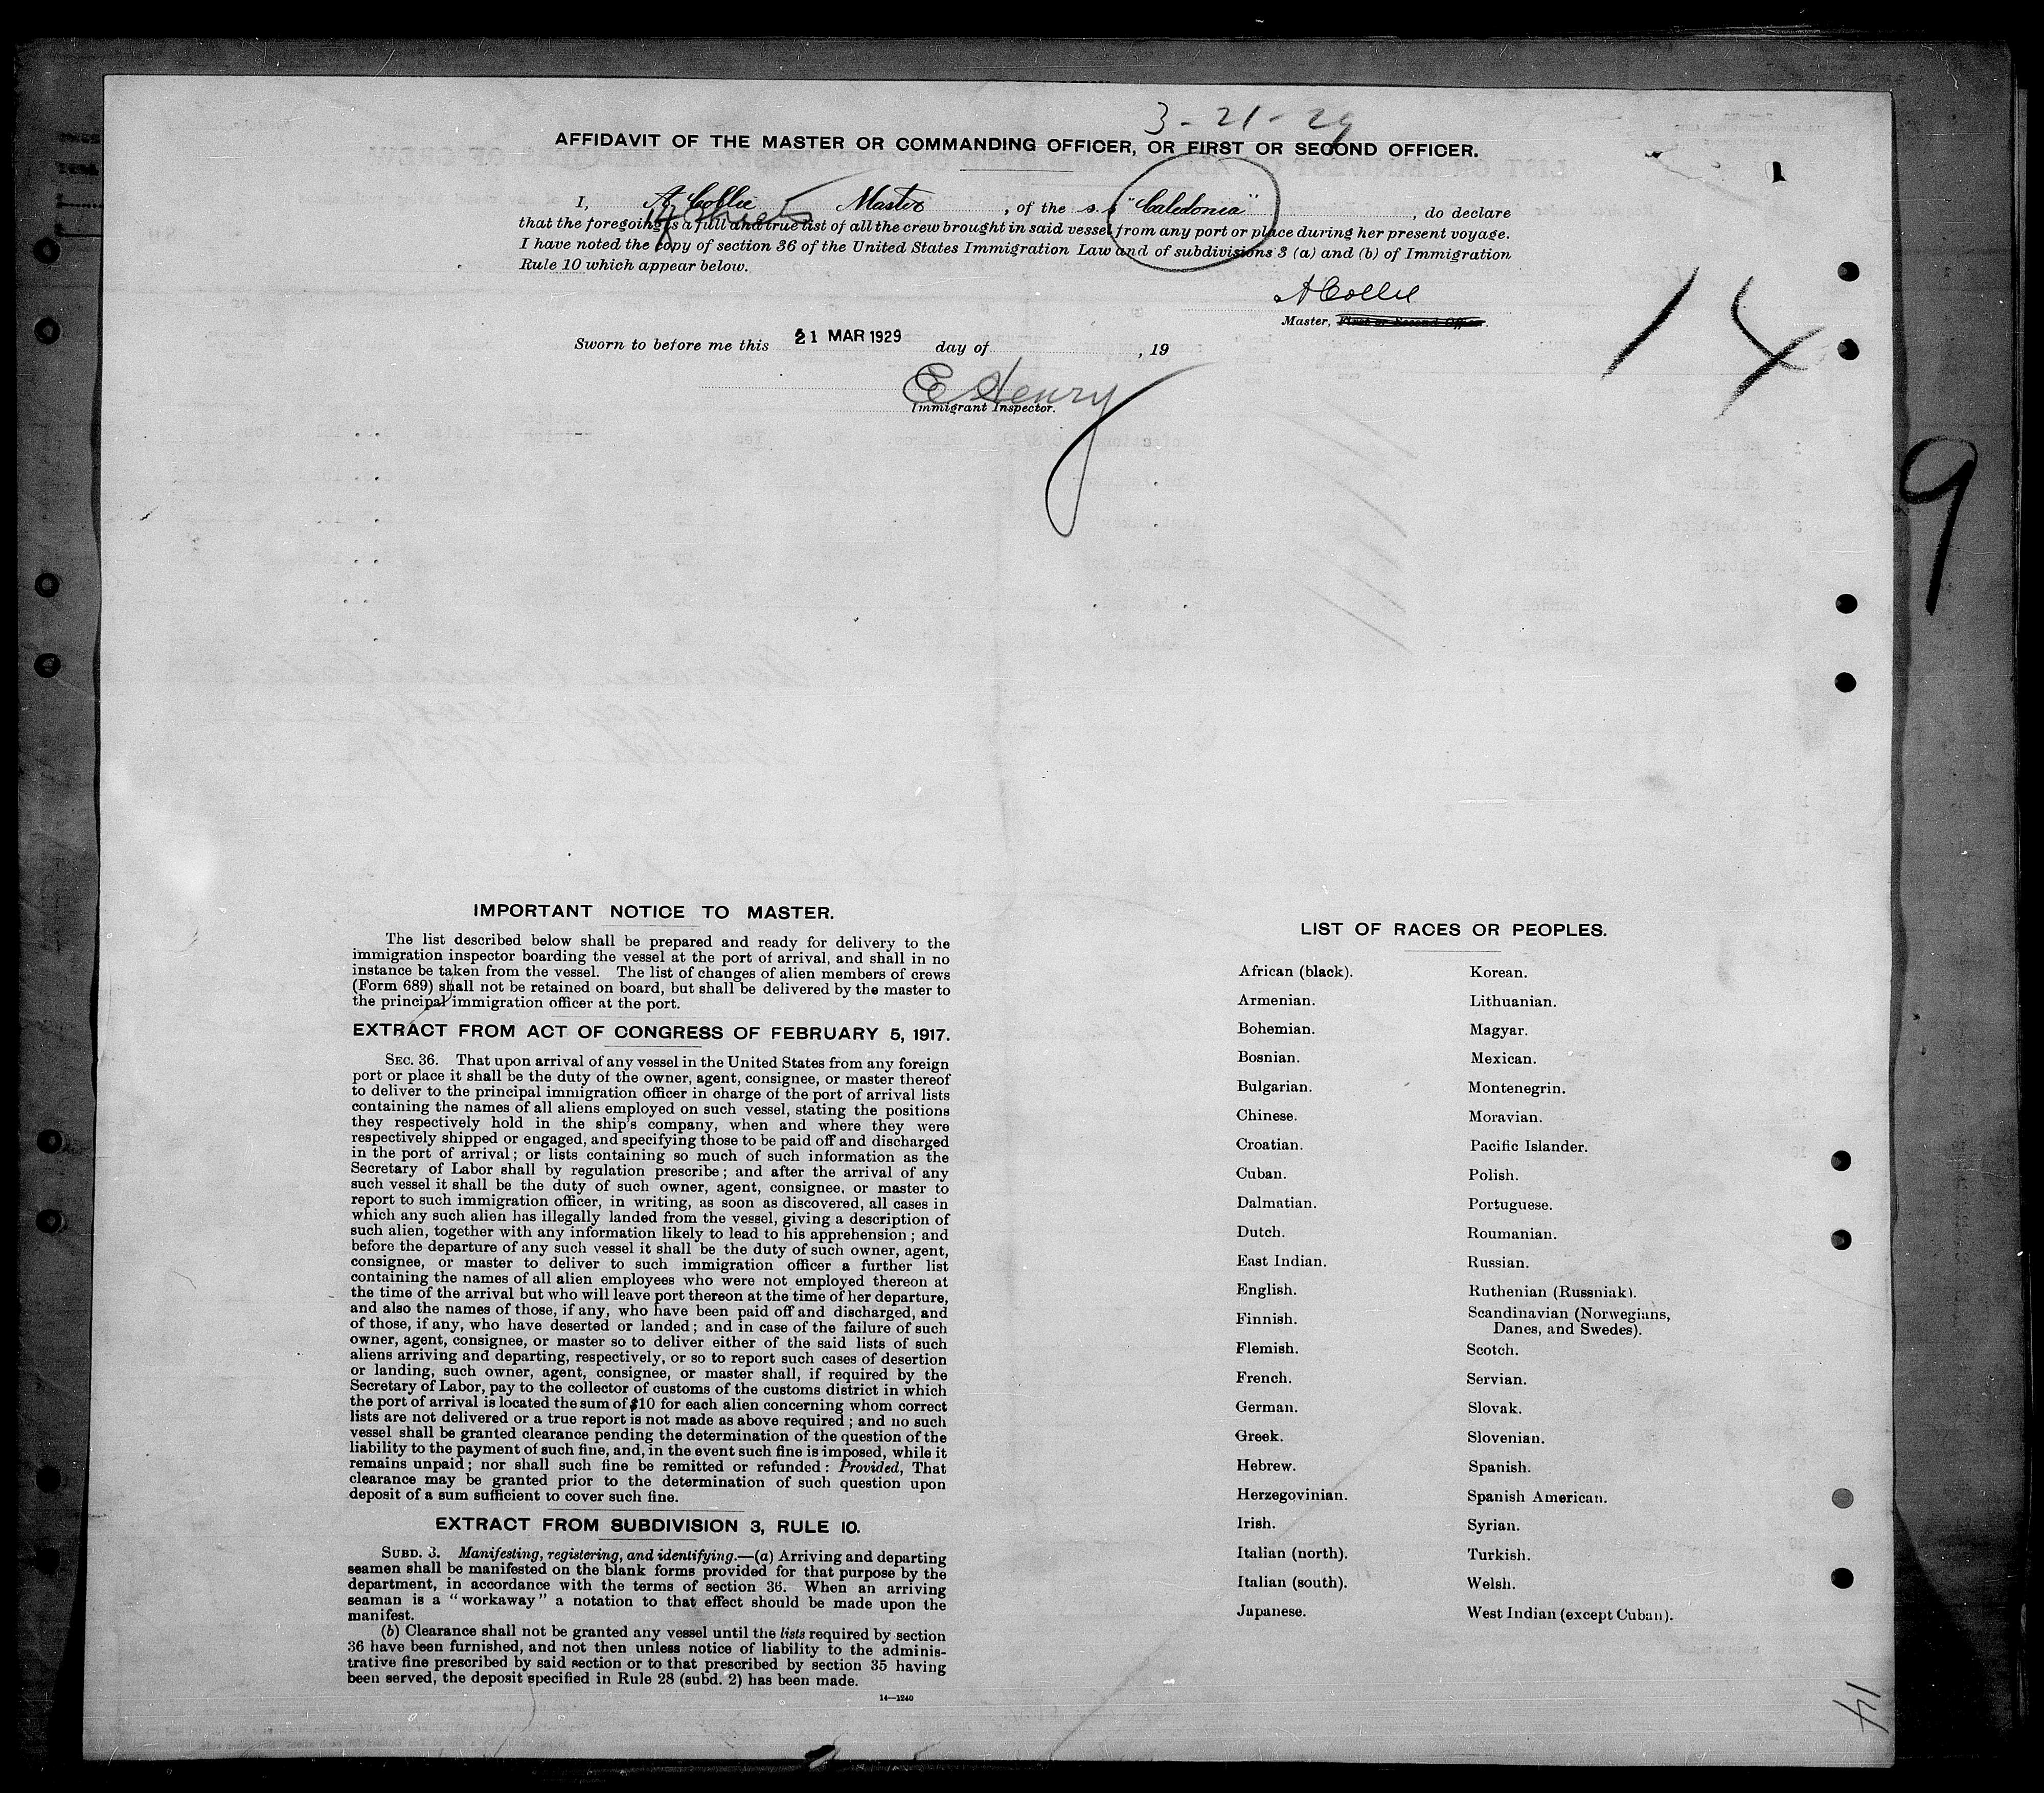 3 - 21 - 29
AFFIDAVIT OF THE MASTER OR COMMANDING OFFICER, OR FIRST OR SECOND OFFICER.
1
I, A Collie Master, of the s.s "Caledonia", do declare
14 sheets
that the foregoing is a full and true list of all the crew brought in said vessel from any port or place during her present voyage.
I have noted the copy of section 36 of the United States Immigration Law and of subdivisions 3 (a) and (b) of Immigration
Rule 10 which appear below.
A Collie
Master, First or Second Officer.
14
Sworn to before me this 21 MAR 1929 day of , 19
E Henry
Immigrant Inspector.
9
IMPORTANT NOTICE TO MASTER.
The list described below shall be prepared and ready for delivery to the
immigration inspector boarding the vessel at the port of arrival, and shall in no
instance be taken from the vessel. The list of changes of alien members of crews
(Form 689) shall not be retained on board, but shall be delivered by the master to
the principal immigration officer at the port.
EXTRACT FROM ACT OF CONGRESS OF FEBRUARY 5, 1917.
SEC. 36. That upon arrival of any vessel in the United States from any foreign
port or place it shall be the duty of the owner, agent, consignee, or master thereof
to deliver to the principal immigration officer in charge of the port of arrival lists
containing the names of all aliens employed on such vessel, stating the positions
they respectively hold in the ship's company, when and where they were
respectively shipped or engaged, and specifying those to be paid off and discharged
in the port of arrival; or lists containing so much of such information as the
Secretary of Labor shall by regulation prescribe; and after the arrival of any
such vessel it shall be the duty of such owner, agent, consignee, or master to
report to such immigration officer, in writing, as soon as discovered, all cases in
which any such alien has illegally landed from the vessel, giving a description of
such alien, together with any information likely to lead to his apprehension; and
before the departure of any such vessel it shall be the duty of such owner, agent,
consignee, or master to deliver to such immigration officer a further list
containing the names of all alien employees who were not employed thereon at
the time of the arrival but who will leave port thereon at the time of her departure,
and also the names of those, if any, who have been paid off and discharged, and
of those, if any, who have deserted or landed; and in case of the failure of such
owner, agent, consignee, or master so to deliver either of the said lists of such
aliens arriving and departing, respectively, or so to report such cases of desertion
or landing, such owner, agent, consignee, or master shall, if required by the
Secretary of Labor, pay to the collector of customs of the customs district in which
the port of arrival is located the sum of $10 for each alien concerning whom correct
lists are not delivered or a true report is not made as above required; and no such
vessel shall be granted clearance pending the determination of the question of the
liability to the payment of such fine, and, in the event such fine is imposed, while it
remains unpaid; nor shall such fine be remitted or refunded: Provided, That
clearance may be granted prior to the determination of such question upon
deposit of a sum sufficient to cover such fine.
EXTRACT FROM SUBDIVISION 3, RULE 10.
SUBD. 3. Manifesting, registering, and identifying.—(a) Arriving and departing
seamen shall be manifested on the blank forms provided for that purpose by the
department, in accordance with the terms of section 36. When an arriving
seaman is a "workaway" a notation to that effect should be made upon the
manifest.
(b) Clearance shall not be granted any vessel until the lists required by section
36 have been furnished, and not then unless notice of liability to the adminis-
trative fine prescribed by said section or to that prescribed by section 35 having
been served, the deposit specified in Rule 28 (subd. 2) has been made.
14—1240
LIST OF RACES OR PEOPLES.
African (black).
Armenian.
Bohemian.
Bosnian.
Bulgarian.
Chinese.
Croatian.
Cuban.
Dalmatian.
Dutch.
East Indian.
English.
Finnish.
Flemish.
French.
German.
Greek.
Hebrew.
Herzegovinian.
Irish.
Italian (north).
Italian (south).
Japanese.
Korean.
Lithuanian.
Magyar.
Mexican.
Montenegrin.
Moravian.
Pacific Islander.
Polish.
Portuguese.
Roumanian.
Russian.
Ruthenian (Russniak).
Scandinavian (Norwegians,
Danes, and Swedes).
Scotch.
Servian.
Slovak.
Slovenian.
Spanish.
Spanish American.
Syrian.
Turkish.
Welsh.
West Indian (except Cuban).
14